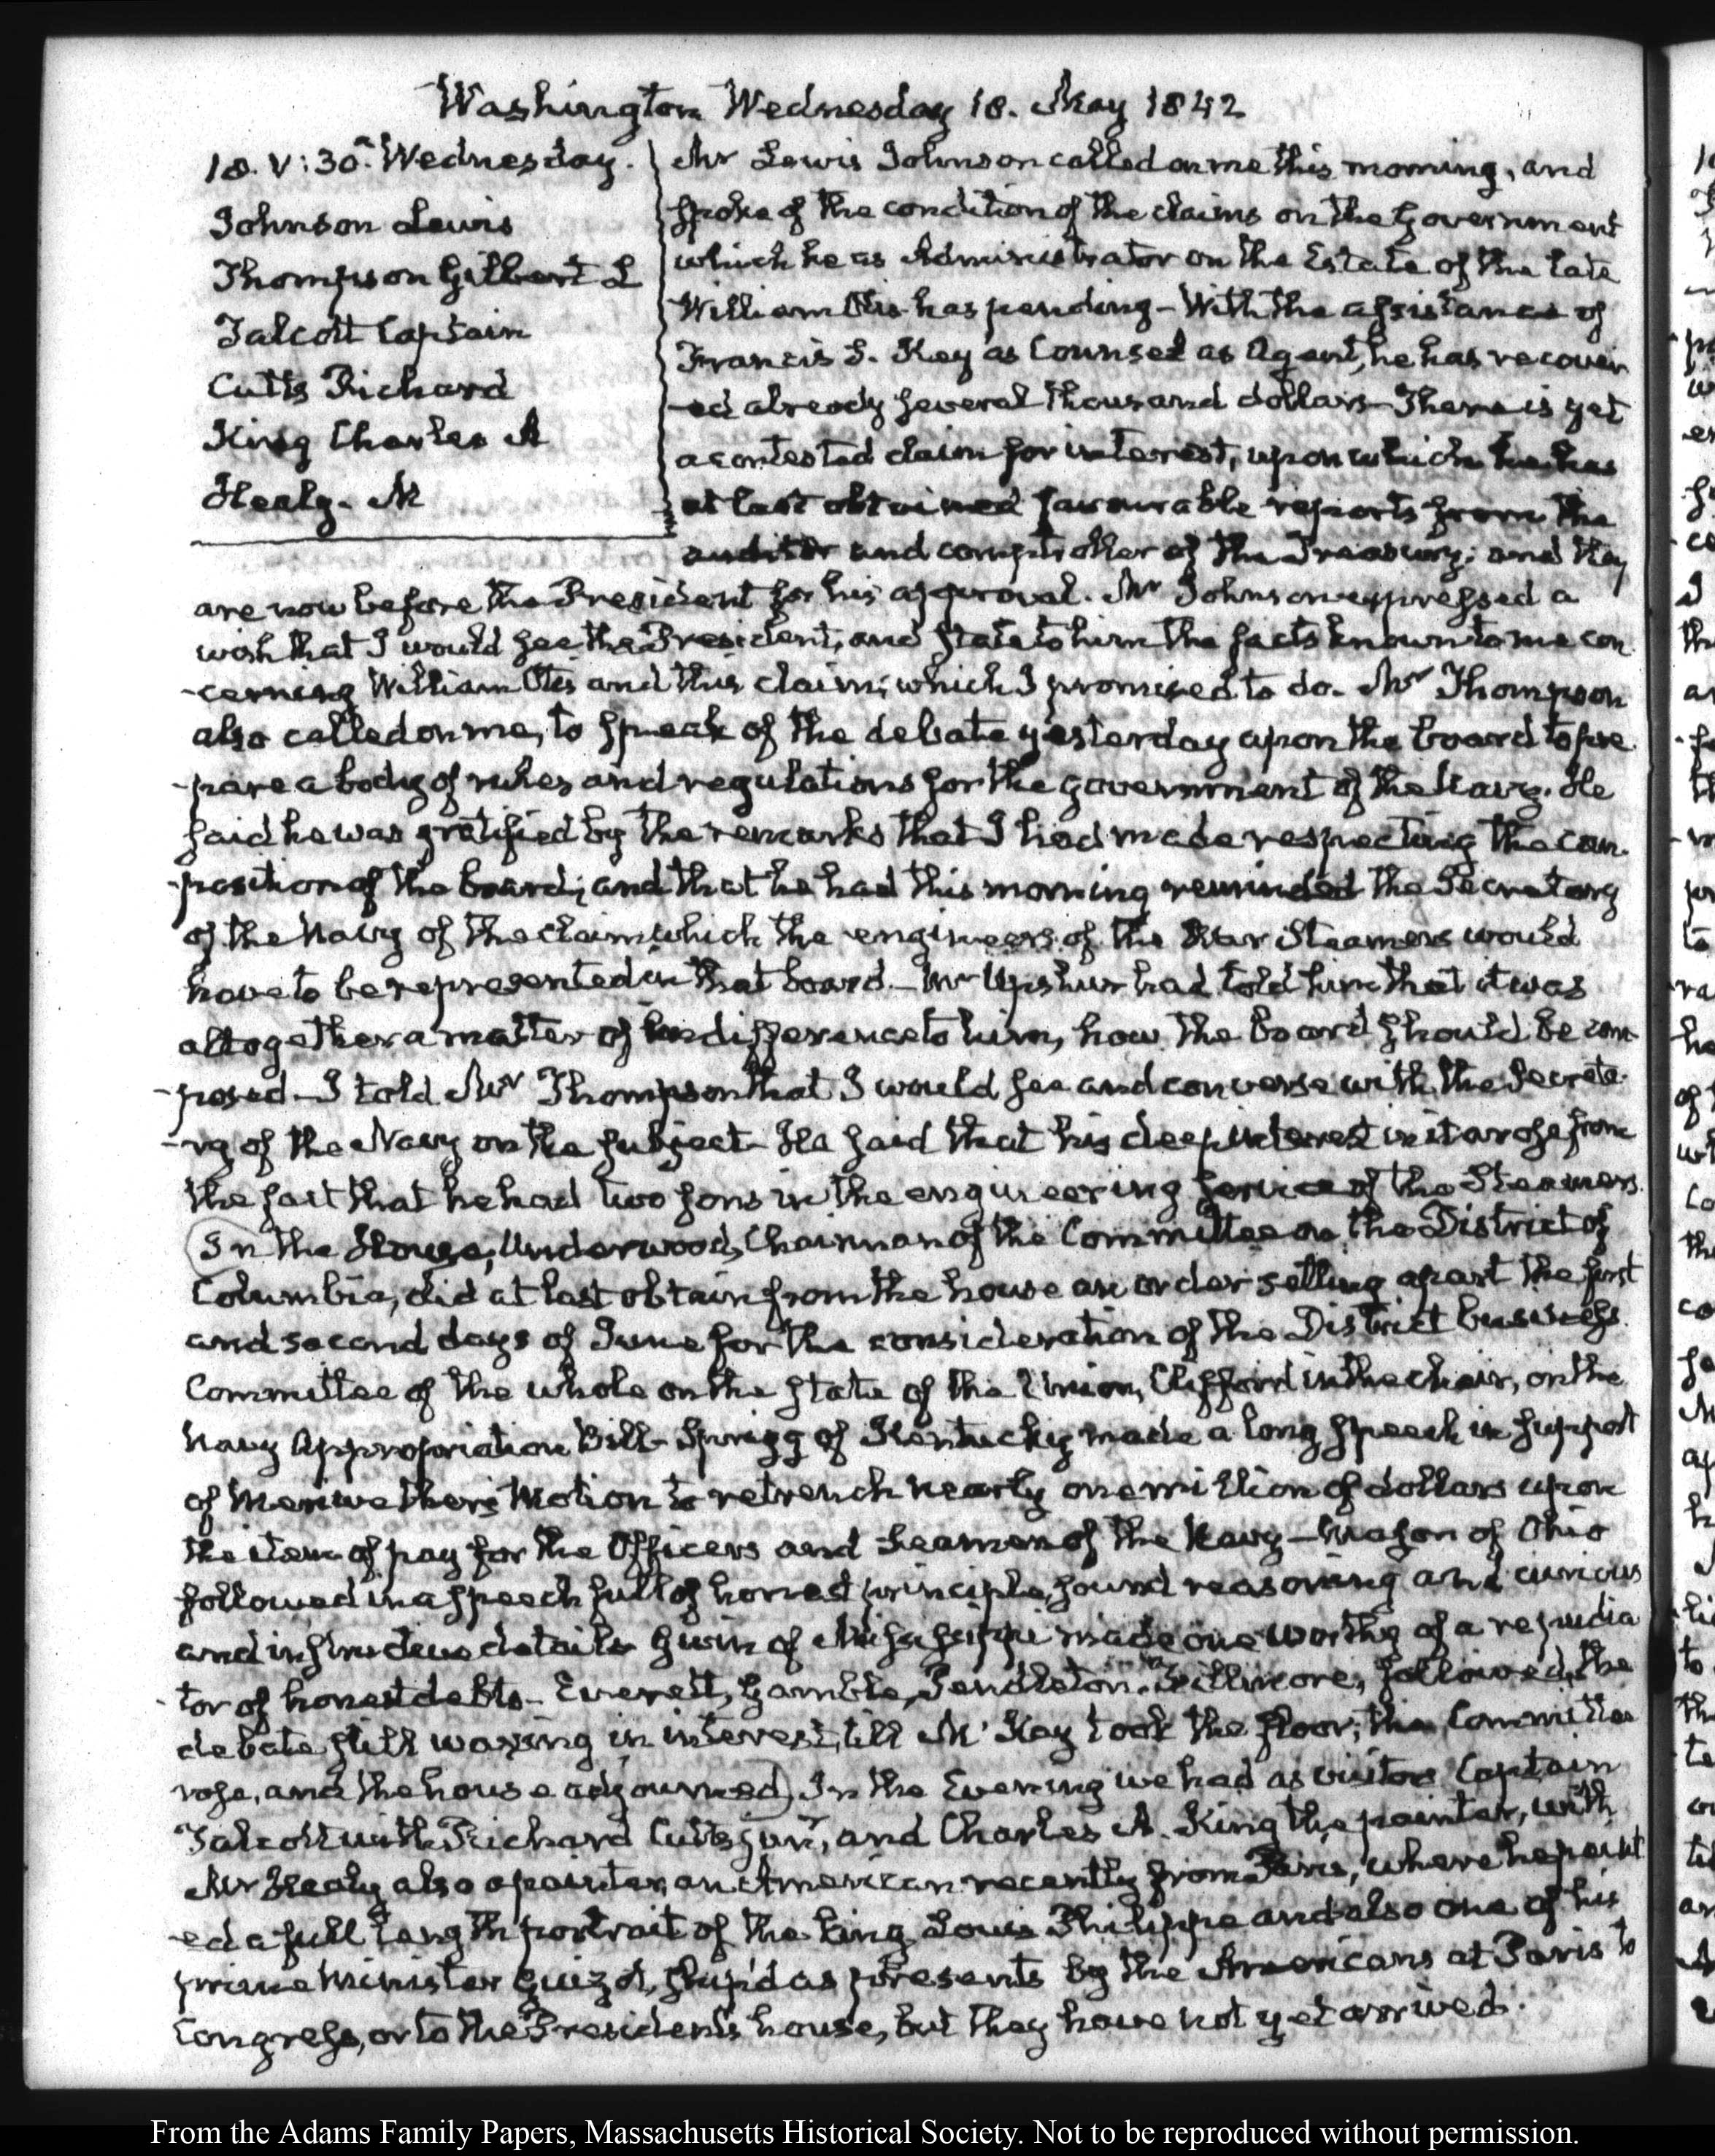 Washington Wednesday 18. May 1842
18. V:30. Wednesday.
Johnson Lewis
Thompson Gilbert L
Talcott Captain
Cutts Richard
King Charles A
Healy. M
Mr Lewis Johnson called on me this morning, and
spoke of the condition of the claims on the Government
which he as Administrator on the Estate of the late
William Otis has pending – With the assistance of
Francis S. Key as Counsel as Agent, he has recover
-ed already several thousand dollars – There is yet
a contested claim for interest, upon which he has
at last obtained favourable reports from the
auditor and comptroller of the Treasury; and they
are now before the President for his approval. Mr Johnson expressed a
wish that I would see the President, and state to him the facts known to me con
-cerning William Otis and this claim; which I promised to do. Mr Thompson
also called on me, to speak of the debate yesterday upon the board to pre
-pare a body of rules and regulations for the government of the Navy. He
said he was gratified by the remarks that I had made respecting the com
-position of the board; and that he had this morning reminded the Secretary
of the Navy of the claim which the engineers of the War Steamers would
have to be represented in that board – Mr Upshur had told him that it was
altogether a matter of indifference to him, how the board should be com
-posed – I told Mr Thompson that I would see and converse with the Secreta
-ry of the Navy on the subject – He said that his deep interest in it arose from
the fact that he had two sons in the engineering service of the Steamers.
In the House, Underwood, Chairman of the Committee on the District of
Columbia, did at last obtain from the house an order setting apart the first
and second days of June for the consideration of the District business.
Committee of the whole on the state of the Union, Clifford in the chair, on the
Navy Appropriation Bill – Sprigg of Kentucky made a long speech in support
of Meriwether's Motion to retrench nearly one million of dollars upon
the item of pay for the Officers and Seamen of the Navy – Mason of Ohio
followed in a speech full of honest principle, sound reasoning and curious
and details – Gwin of Mississippi made one worthy of a repudia
-tor of honest debts – Everett, Gamble, Pendleton, Fillmore, followed, the
debate still waxing in interest, till McKay took the floor; the Committee
rose, and the house adjourned) In the Evening we had as visitors Captain
Talcott with Richard Cutts junr, and Charles A. King the painter, with
Mr Healy also a painter, an American recently from Paris, where he paint
-ed a full length portrait of the king Louis Philippe and also one of his
prime Minister Guizot, ship'd as presents by the Americans at Paris to
Congress, or to the President's house, but they have not yet arrived.
From the Adams Family Papers, Massachusetts Historical Society. Not to be reproduced without permission.